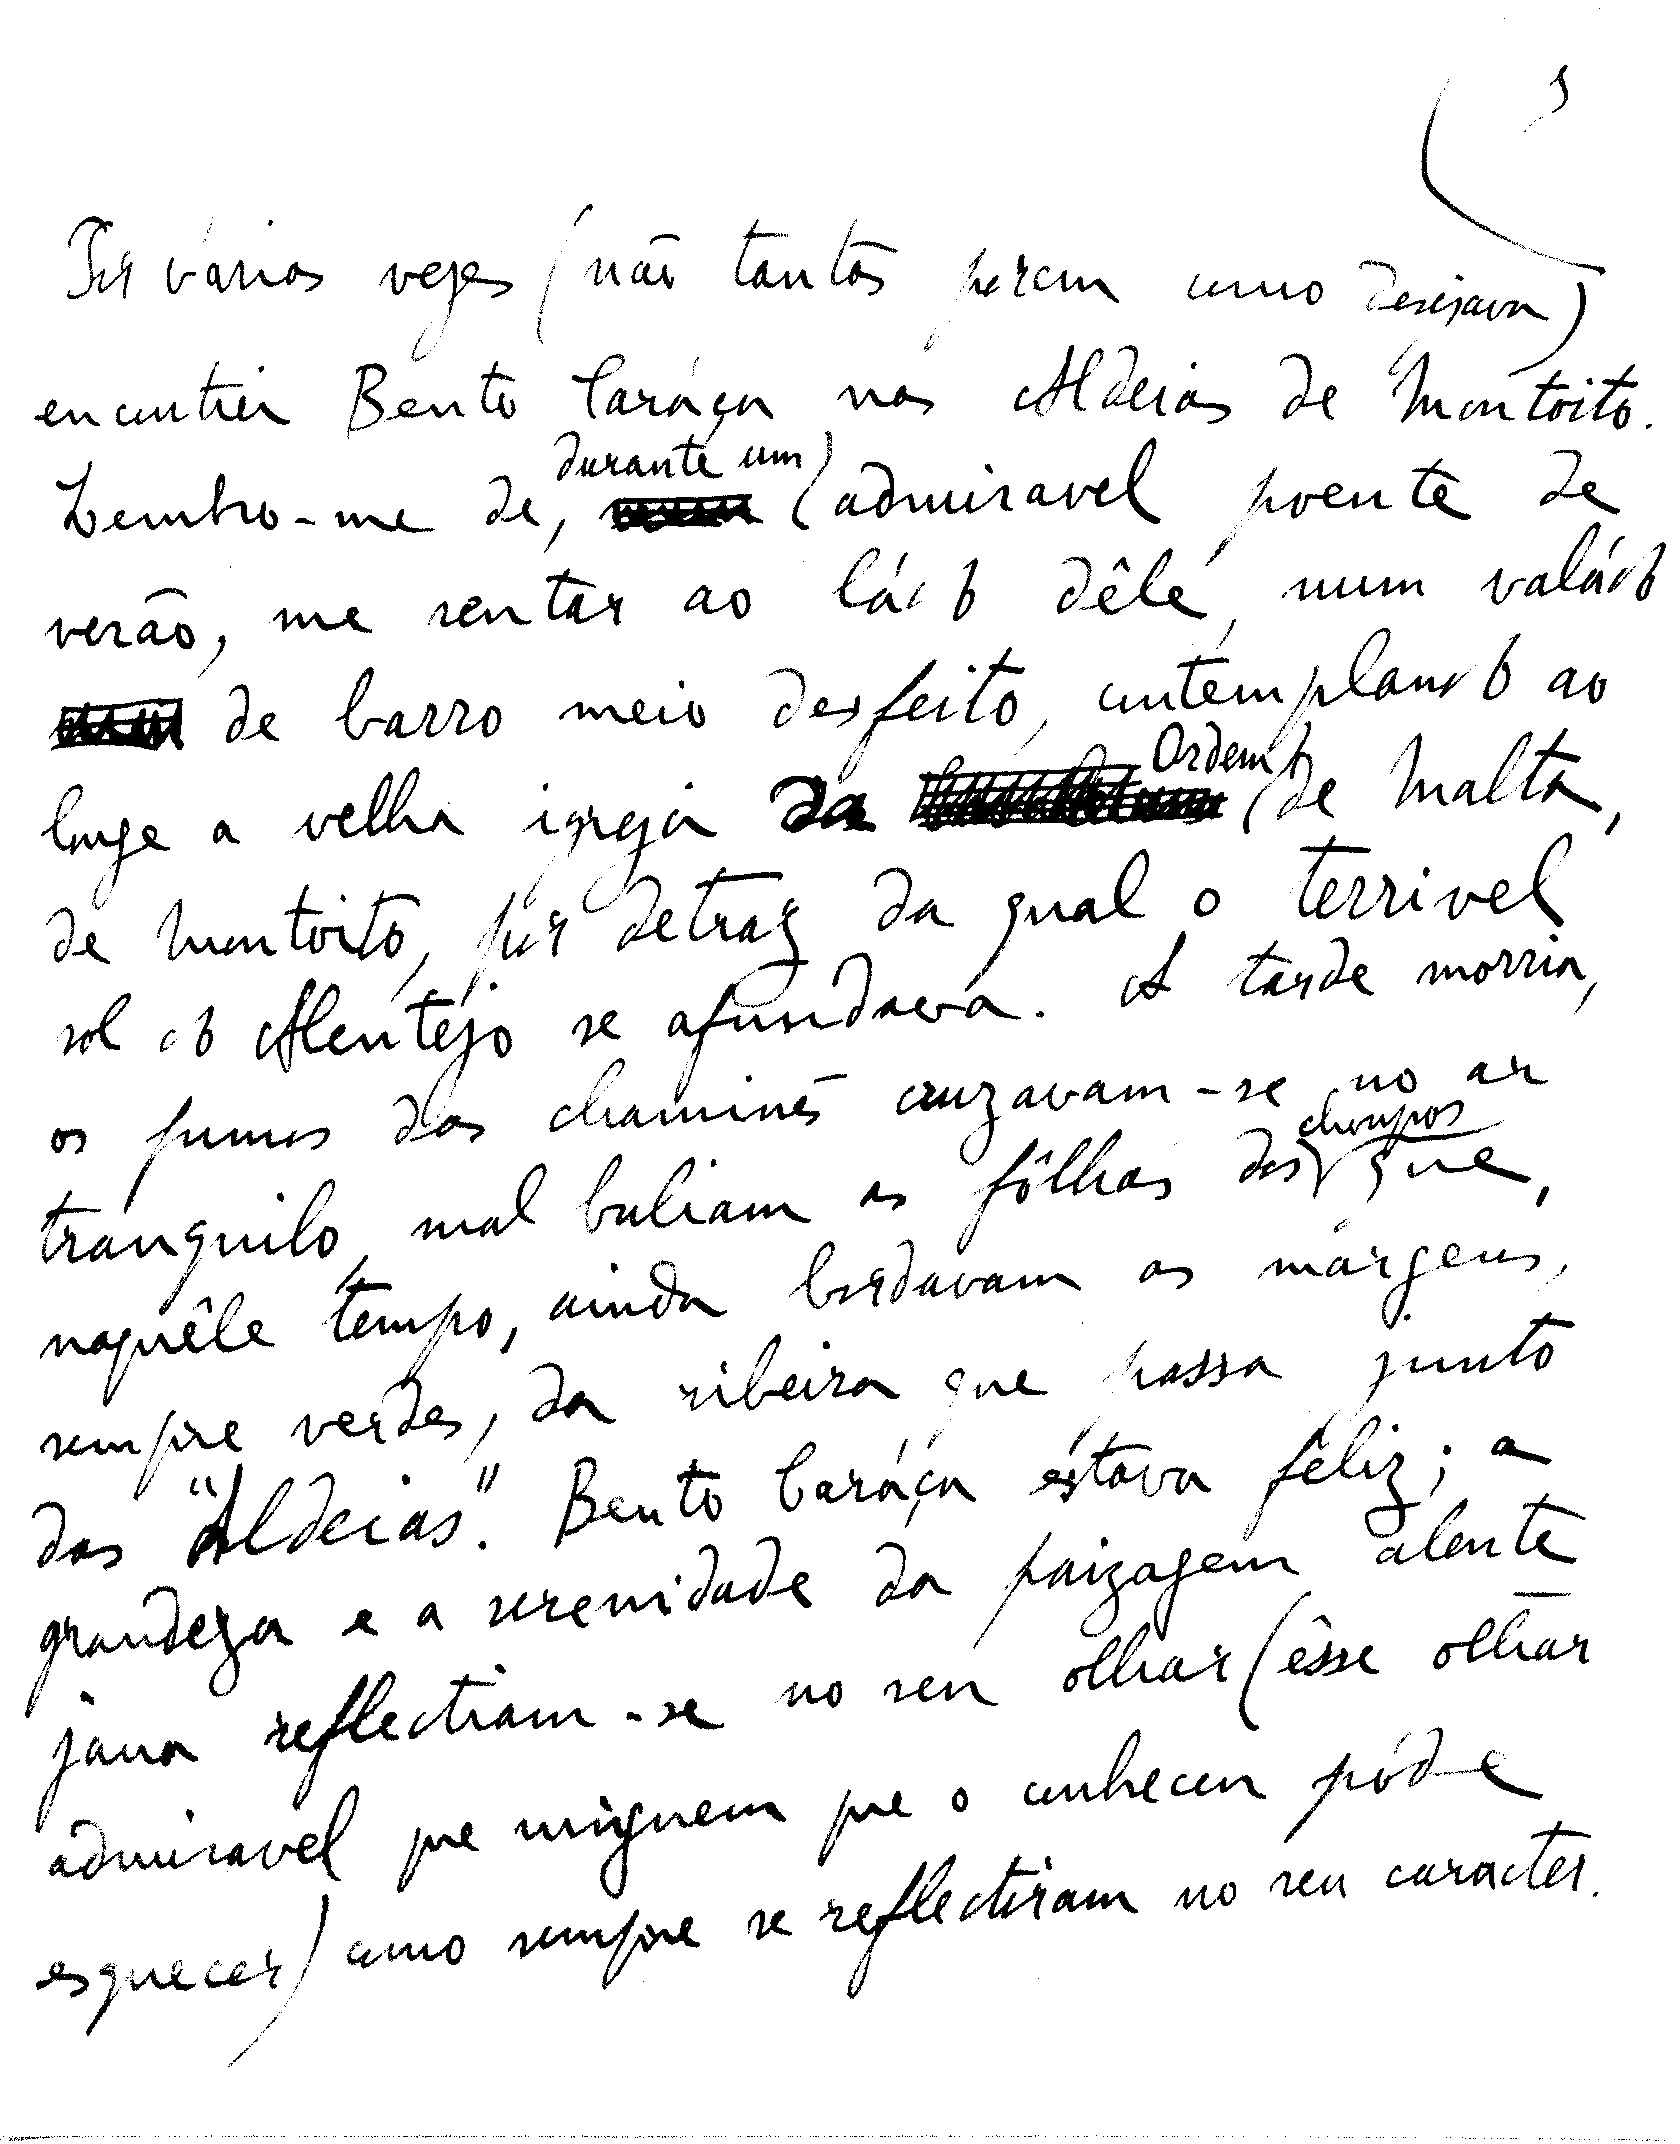 Por várias vezes (não tantas porem como desejava)
encontrei Bento Caráça nas Aldeias de Montoito.
Lembro-me de, durante um admiravel poente de
verão, me sentar ao ládo dêle, num valádo
de barro meio desfeito, contemplando ao
longe a velha igreja da Ordem de Malta,
de Montoito, por detraz da qual o terrivel
sol do Alentejo se afundava. A tarde morria,
os fumos das chaminés cruzavam-se no ar
tranquilo, mal buliam as fôlhas dos choupos que,
naquêle tempo, ainda bordavam as márgens,
sempre verdes, da ribeira que passa junto
das "Aldeias". Bento Caráça estava feliz; a
grandeza e a serenidade da paizagem alente
jana reflectiam-se no seu olhar (êsse olhar
admiravel que ninguem que o conheceu póde
esquecer) como sempre se reflectiram no seu caracter.